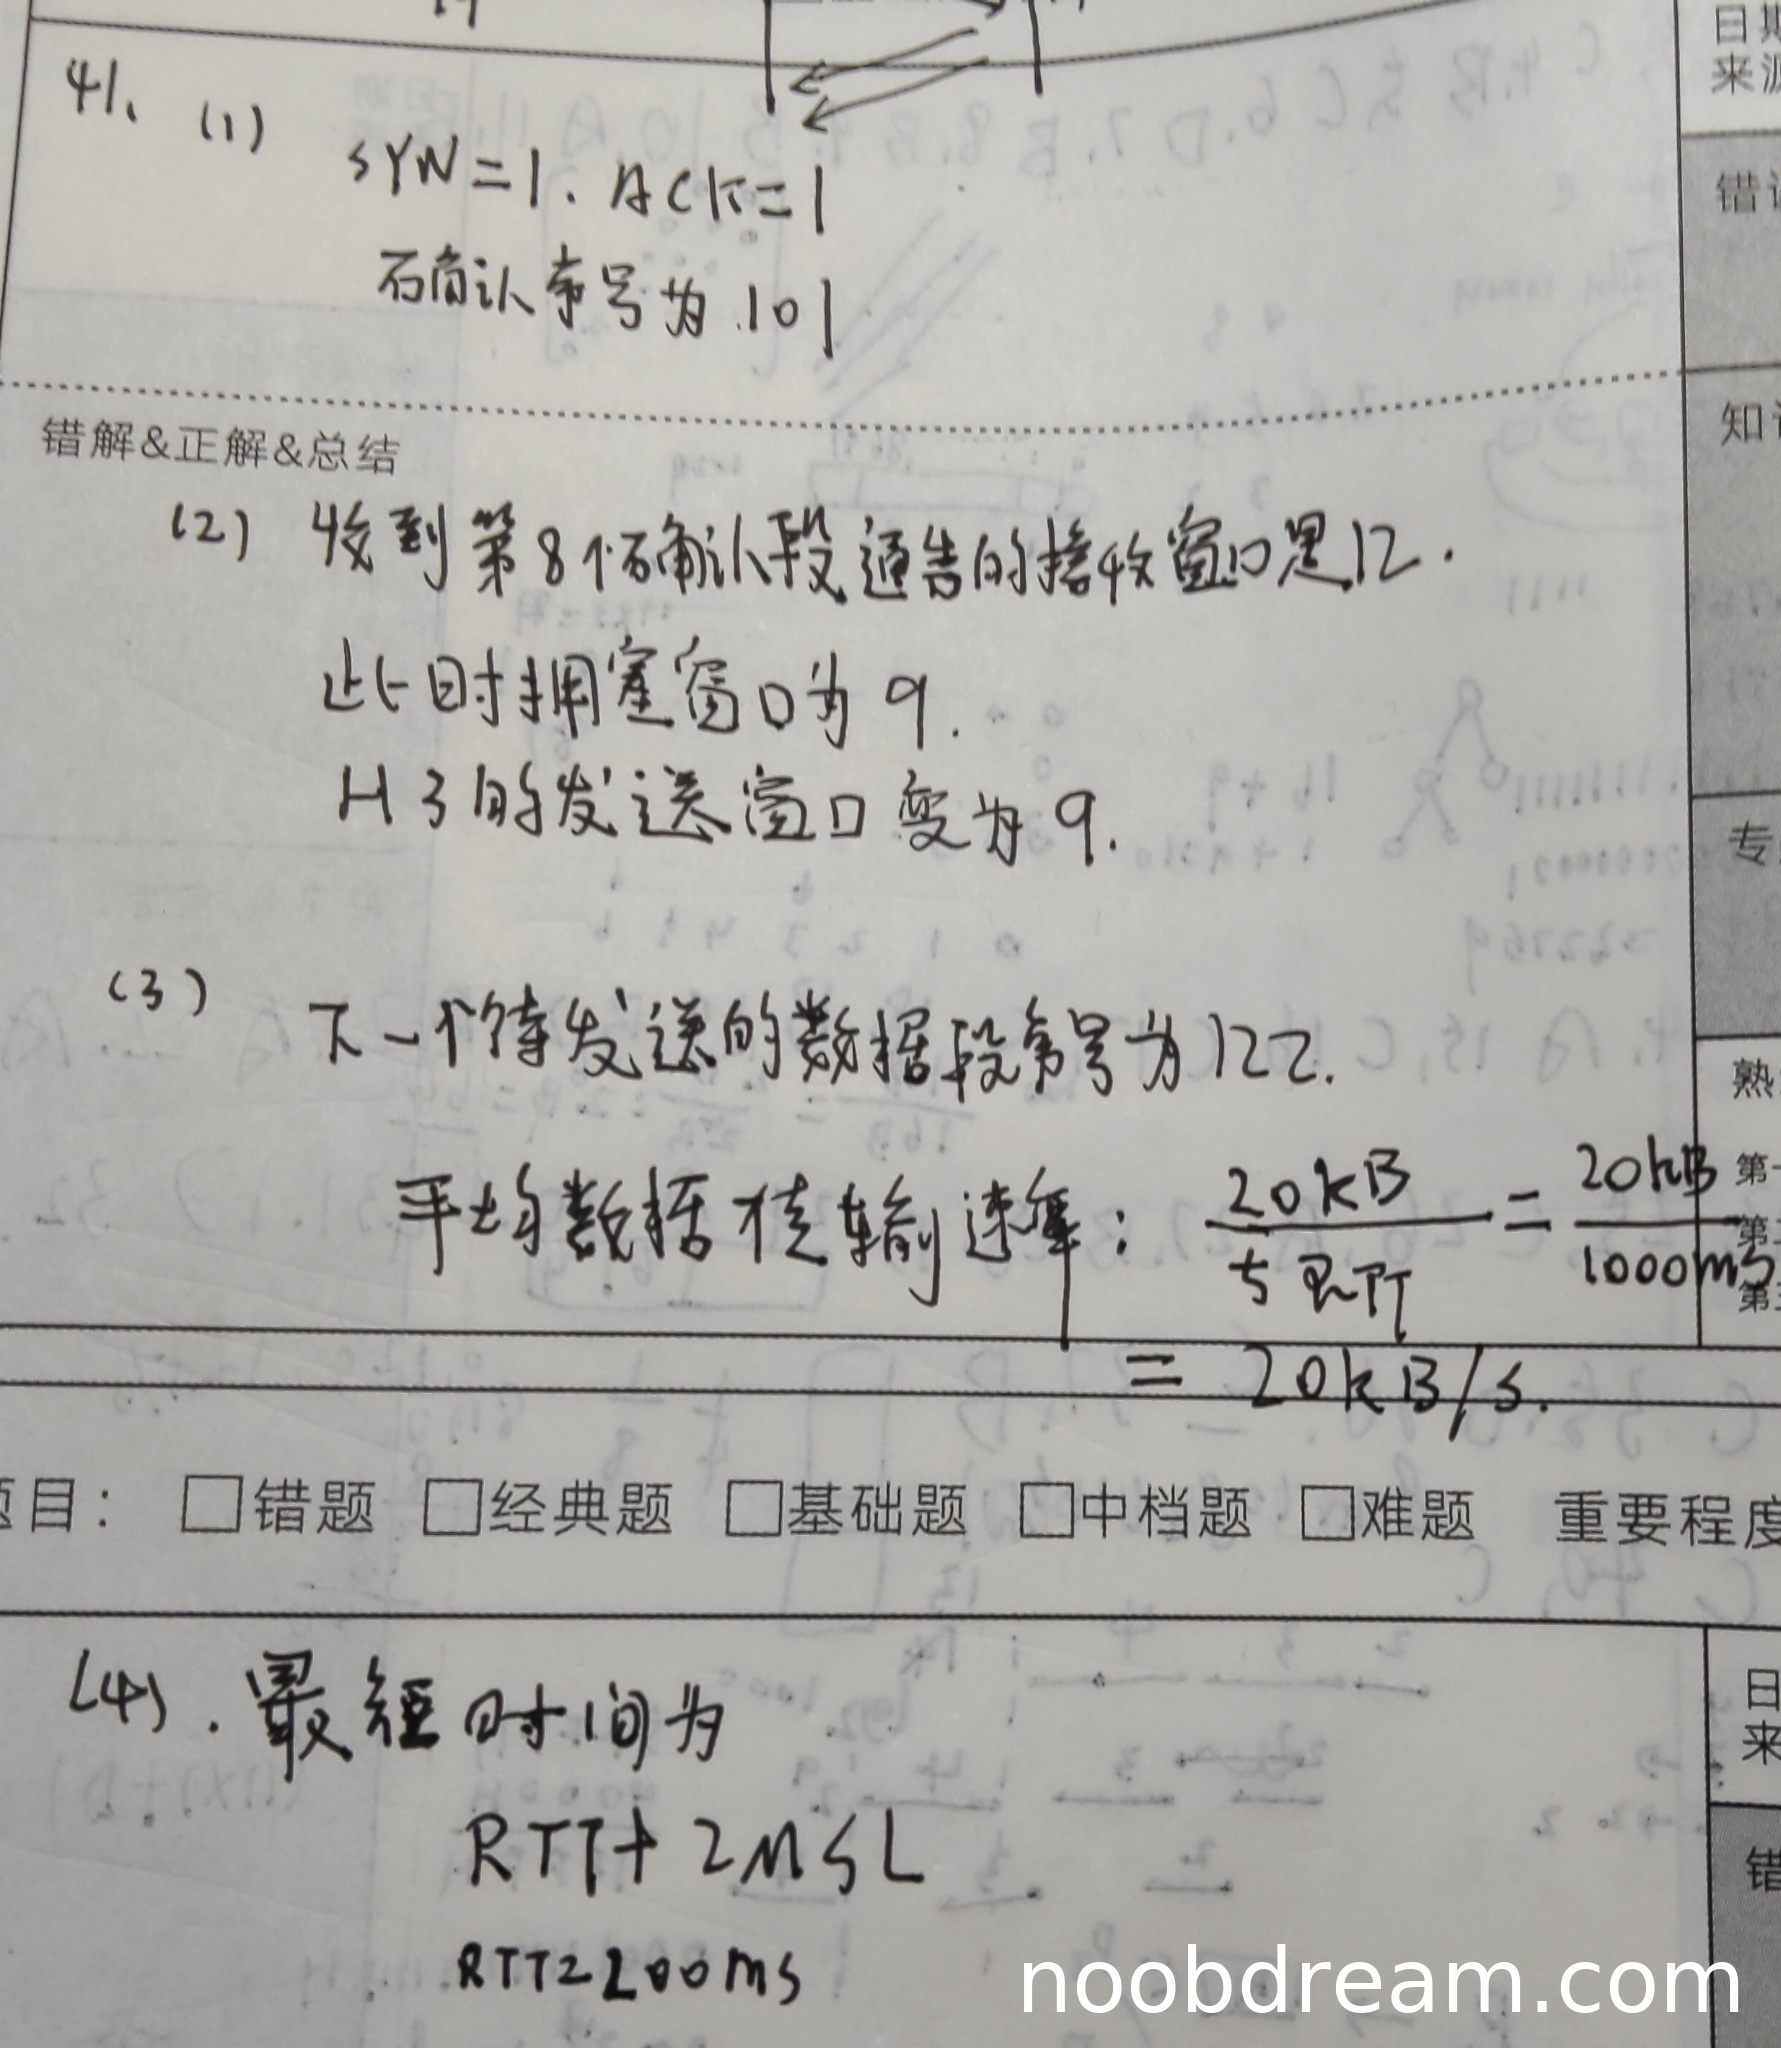 41. (1)
SYN=1. ACK=1
确认序号为 101
错解&正解&总结
(2) 收到第8个确认段通告的接收窗口是12.
此时拥塞窗口为9.
H3的发送窗口变为9.
(3) 下一个待发送的数据段序号为122.
平均数据传输速率: 20kB/5RTT = 20kB/1000ms
= 20kB/s.
题目: □错题 □经典题 □基础题 □中档题 □难题 重要程度
(4). 最短时间为
RTT+2MSL
RTT=200ms
日期
来源
错
知
专
熟
第一
第二
第三
日
来
错
noobdream.com